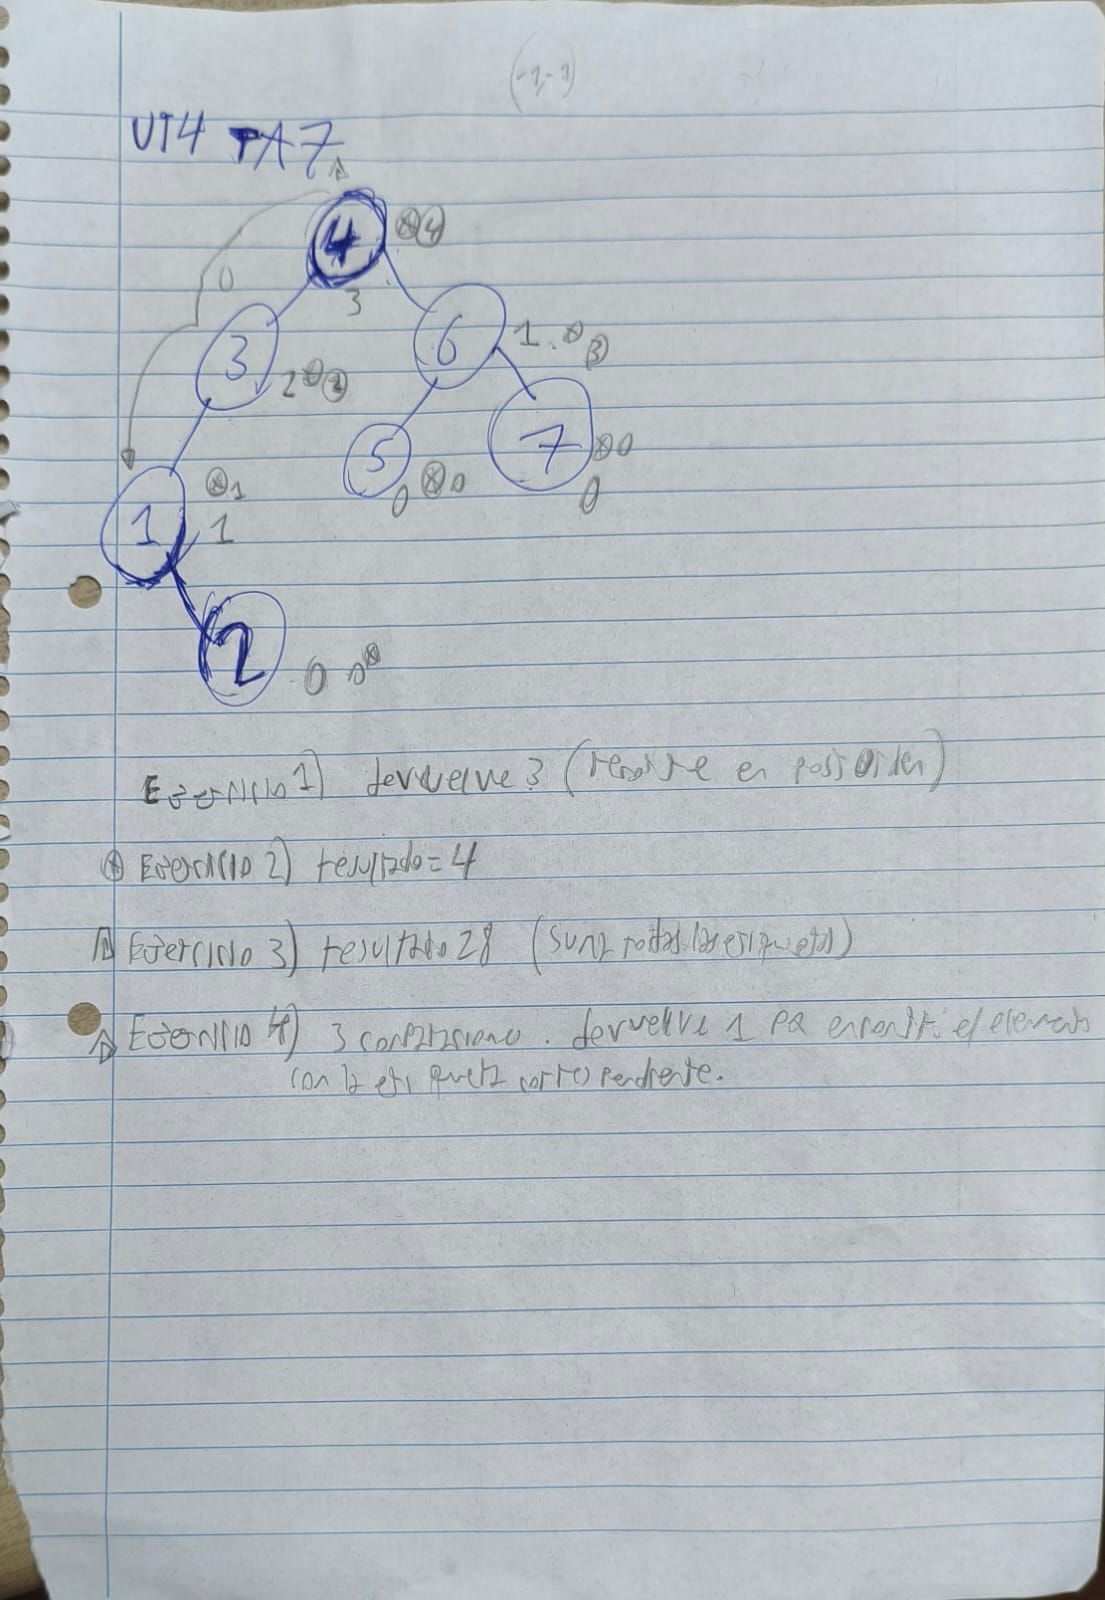 (-1,-1)
UT4 TA7
4 ⊗ 4
0
3
3 2 ⊗
6 1 ⊗ 3
5 0 ⊗ 0
7 ⊗ 0
0
1 ⊗ 1
1
2 0 0 ⊗
Ejercicio 1) devuelve 3 (recorre en postorden)
⊗ Ejercicio 2) resultado = 4
Ejercicio 3) resultado 28 (suma todas las etiquetas)
Ejercicio 4) 3 comparaciones. devuelve 1 encontró el elemento
con la etiqueta correspondiente.